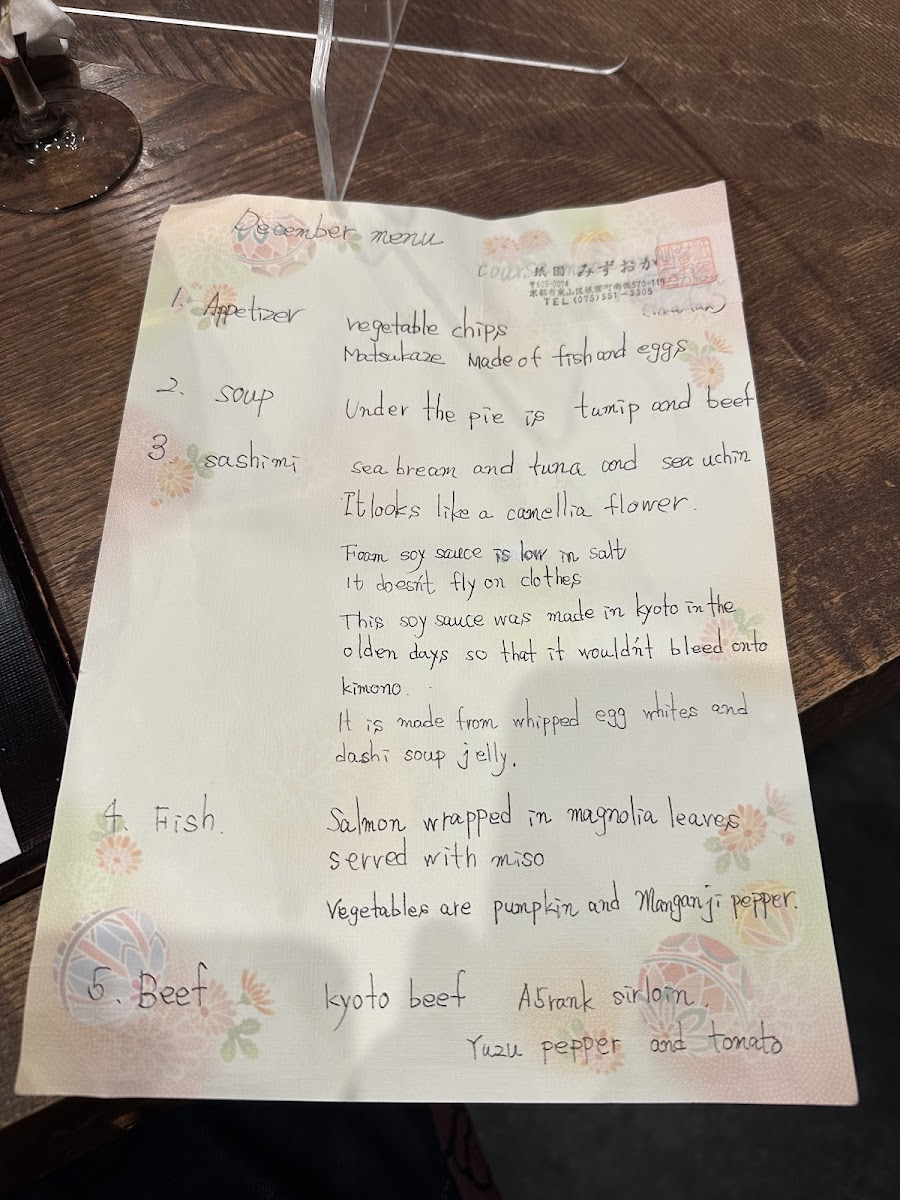 December menu
祇園 みずおか
〒605-0074
京都市東山区祇園町南側570-119
TEL (075) 551-2305
1. Appetizer vegetable chips
Matsukaze Made of fish and eggs
2. soup Under the pie is turnip and beef
3 sashimi sea bream and tuna and sea uchin
It looks like a camellia flower.
Foam soy sauce is low in salt
It doesn't fly on clothes
This soy sauce was made in kyoto in the
olden days so that it wouldn't bleed onto
kimono.
It is made from whipped egg whites and
dashi soup jelly.
4. Fish. Salmon wrapped in magnolia leaves
served with miso
Vegetables are pumpkin and Manganji pepper.
5. Beef kyoto beef A5rank sirloin.
Yuzu pepper and tomato